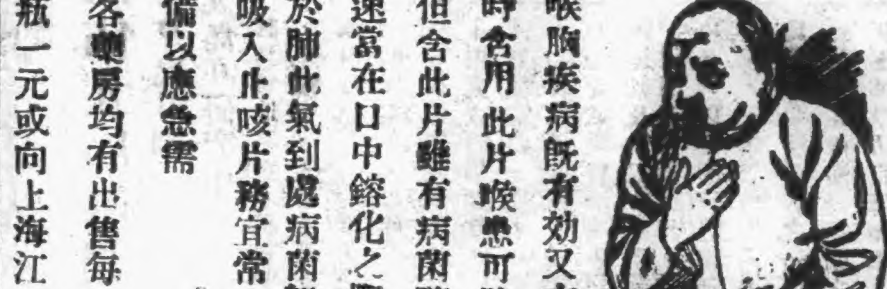 喉胸疾病既有効又
時含用 此片喉患可
但含此片雖有病菌
速當在口中鎔化之
於肺此氣到處病菌
吸入止咳片務宜常
備以應急需
各藥房均有出售每
瓶一元或向上海江